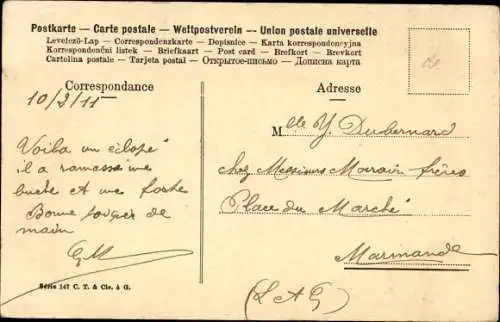 Postkarte — Carte postale — Weltpostverein — Union postale universelle
Levelező-Lap — Correspondenzkarte — Dopisnice — Karta korrespondencyjna
Korrespondenční listek — Briefkaart — Post card — Brefkort — Brevkort
Cartolina postale — Tarjeta postal — Открытое-письмо — Дописна карта
Correspondance
Adresse
10/2/11
Voila un éclopé
il a ramassé une
buche et une forte
Bonne
de
main
GM
M lle Y. Dubernard
chez Messieurs frères
Place du Marché
Marmande
(L et G)
Série 147 C. T. & Cie. à G.